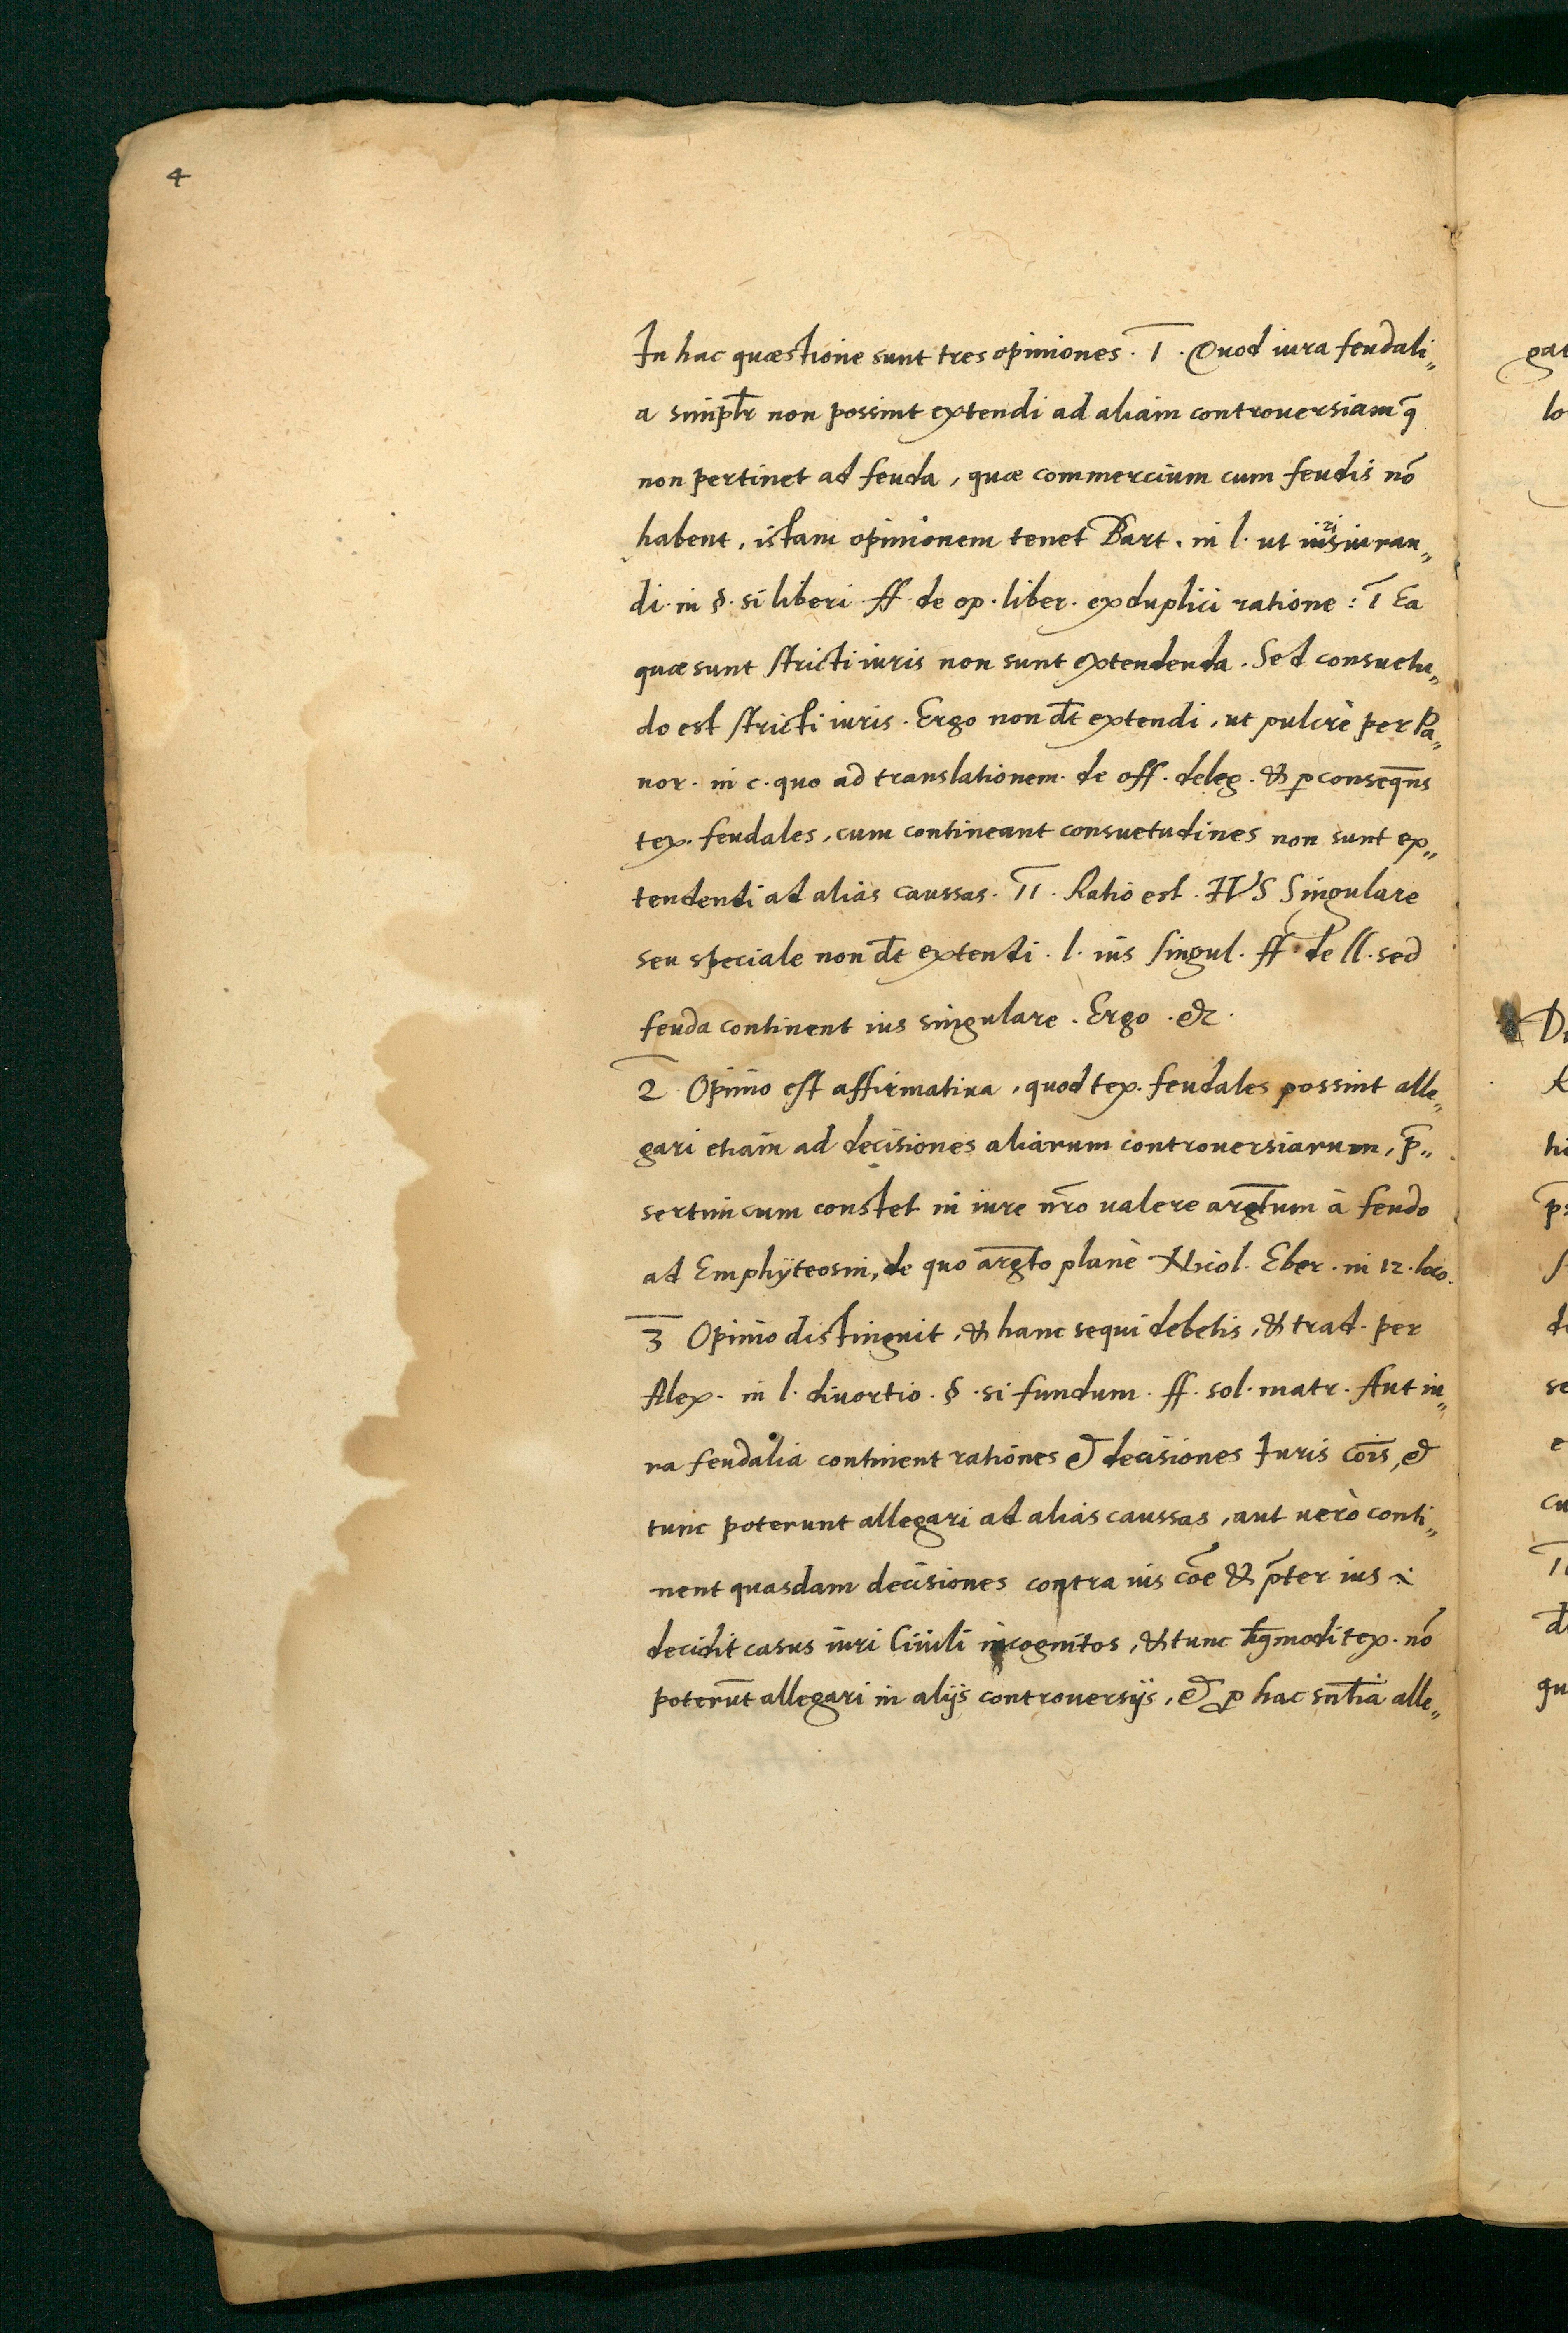 4
In hac quæstione sunt tres opiniones. I. Quod iura feudali„
a simpl̄r non possint extendi ad aliam controuersiam q̄
non pertinet ad feuda, quæ commercium cum feudis nō
habent, istam opinionem tenet Bart. in l. ut iurisiuran„
di. in §. si liberi ff de op. liber. ex duplici ratione: I Ea
quæ sunt stricti iuris non sunt extendenda. Sed consuetu„
do est stricti iuris. Ergo non d̄t extendi, ut pulcrè per Pa„
nor. in c. quo ad translationem. de off. deleg. & ꝑ conseq̄ns
tex. feudales, cum contineant consuetudines non sunt ex„
tendendi ad alias caussas. II. Ratio est. IVS Singulare
seu speciale non d̄t extendi. l. ius singul. ff de ll. sed
feuda continent ius singulare. Ergo. &c.
2 Opinio est affirmatiua, quod tex. feudales possint alle„
gari etiam ad decisiones aliarum controuersiarum, p̄„
sertim cum constet in iure nr̄o ualere arḡtum à feudo
ad Emphÿteosin, de quo arḡto planè Nicol. Eber. in 12. loco.
3 Opinio distinguit, & hanc sequi debetis, & trad. per
Alex. in l. diuortio. §. si fundum. ff. sol. matr. Aut iu„
ra feudalia continent rationes & decisiones Iuris cōis, &
tunc poterunt allegari ad alias caussas, aut uerò conti„
nent quasdam decisiones contra ius cōe & p̄ter ius
decidit casus iuri Ciuili incognitos, & tunc hmōdi tex. nō
poterūt allegari in alijs controuersijs, & ꝓ hac sn̄tia alle„